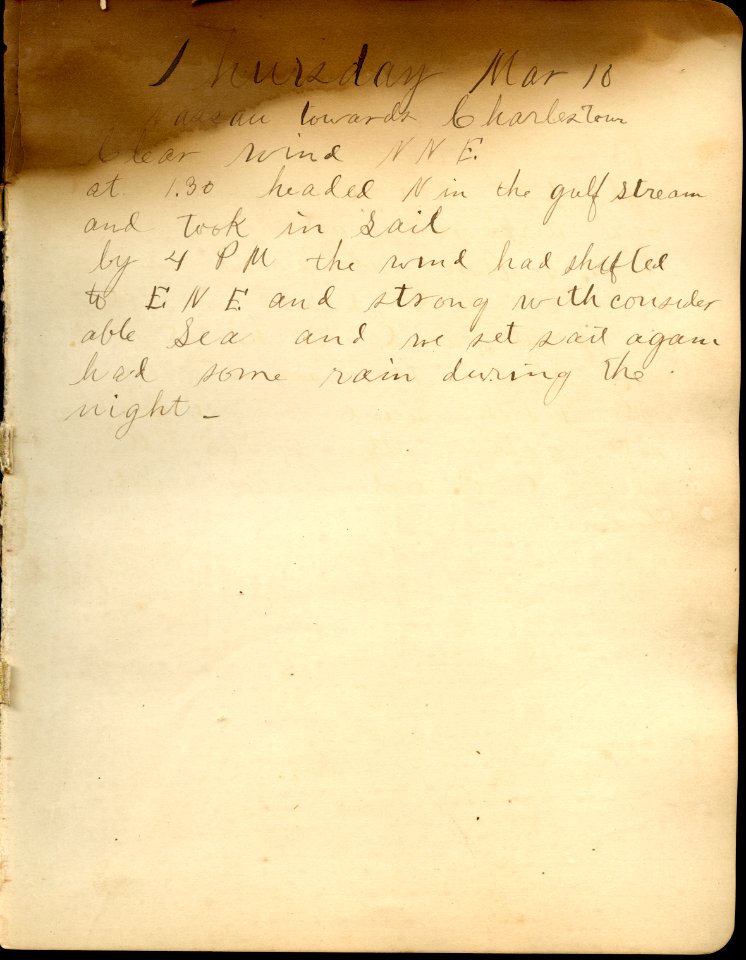 Thursday Mar 10
Nassau towards Charlestown
Clear wind N N E.
at 1.30 headed N in the gulf stream
and took in Sail
by 4 P M the wind had shifted
to E. N E. and strong with consider
able Sea and we set sail again
had some rain during the
night –